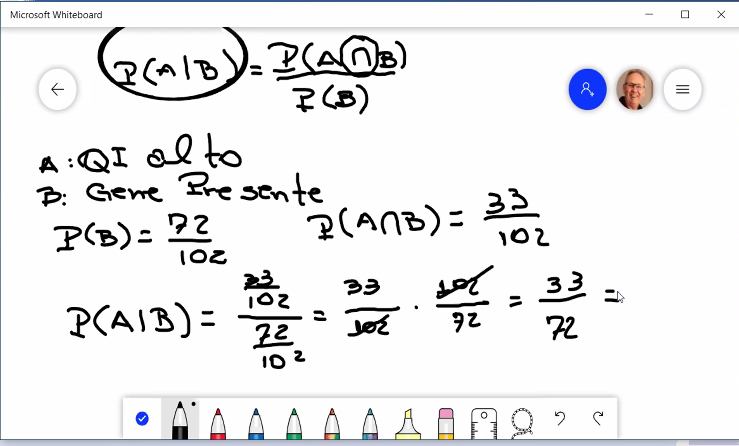 Microsoft Whiteboard
P(A|B) = P(A∩B) / P(B)
A: QI alto
B: Gene Presente
P(B) = 72/102 P(A∩B) = 33/102
P(A|B) = (33/102) / (72/102) = 33/102 · 102/72 = 33/72 =